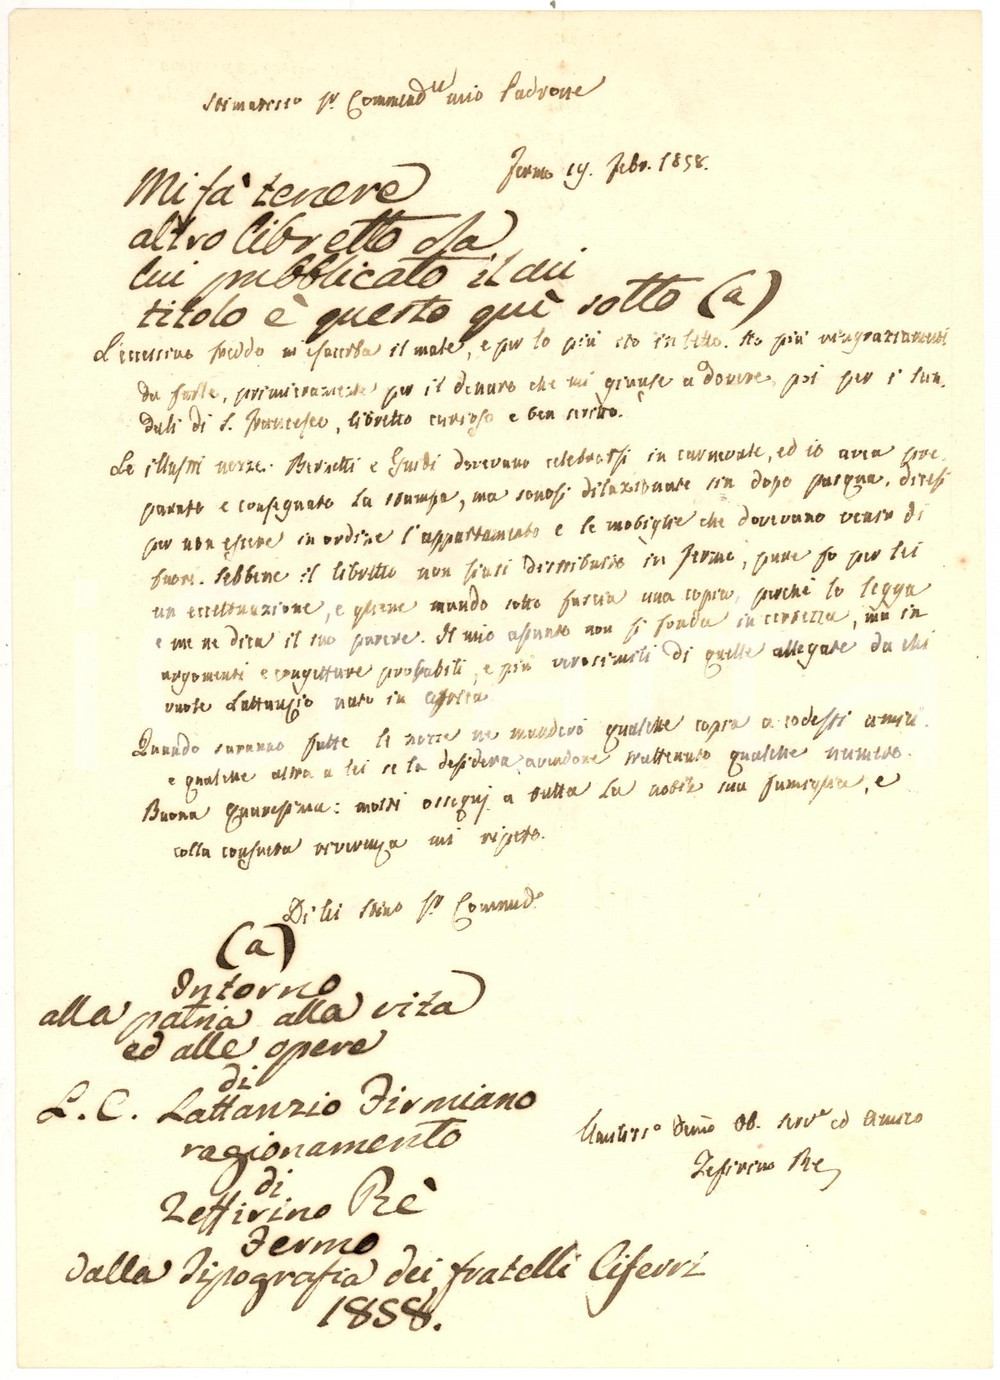 Stimatisso Sr. Commendre mio Padrone
Fermo 19. Febr. 1858.
Mi fà tenere
altro libretto da
lui pubblicato il cui
titolo è questo quì sotto (a)
L'eccessivo freddo mi esacerba il male, e per lo più sto in letto. Ho più ringraziamenti
da farle, primieramente per il denaro che mi giunse a dovere, poi per i San-
dali di S. Francesco, libretto curioso e ben scritto.
Le illustri nozze Bernetti e Guidi dovevano celebrarsi in carnevale, ed io avea pre-
parato e consegnato la stampa, ma sonosi dilazionate sin dopo pasqua, dicesi
per non essere in ordine l'appartamento e le mobiglie che dovevano venir di
fuori. Sebbene il libretto non siasi distribuito in Fermo, pure fo per lei
un eccettuazione, e gliene mando sotto fascia una copia, perchè lo legga
e me ne dica il suo parere. Il mio assunto non si fonda in certezza, ma in
argomenti e congetture probabili, e più verosimili di quelle allegate da chi
vuole Lattanzio nato in Africa.
Quando saranno fatte le nozze ne manderò qualche copia a codesti amici
e qualche altra a lei se la desidera, avendone trattenuto qualche numero.
Buona Quaresima: molti ossequj a tutta la nobile sua famiglia, e
colla consueta riverenza mi ripeto.
Di lei Stimo Sr. Commendo
(a)
Intorno
alla patria alla vita
ed alle opere
di
L. C. Lattanzio Firmiano
ragionamento
di
Zeffirino Rè
Fermo
dalla Tipografia dei fratelli Ciferri
1858.
Umilisso Dmo Ob. Servre ed Amico
Zefirino Re